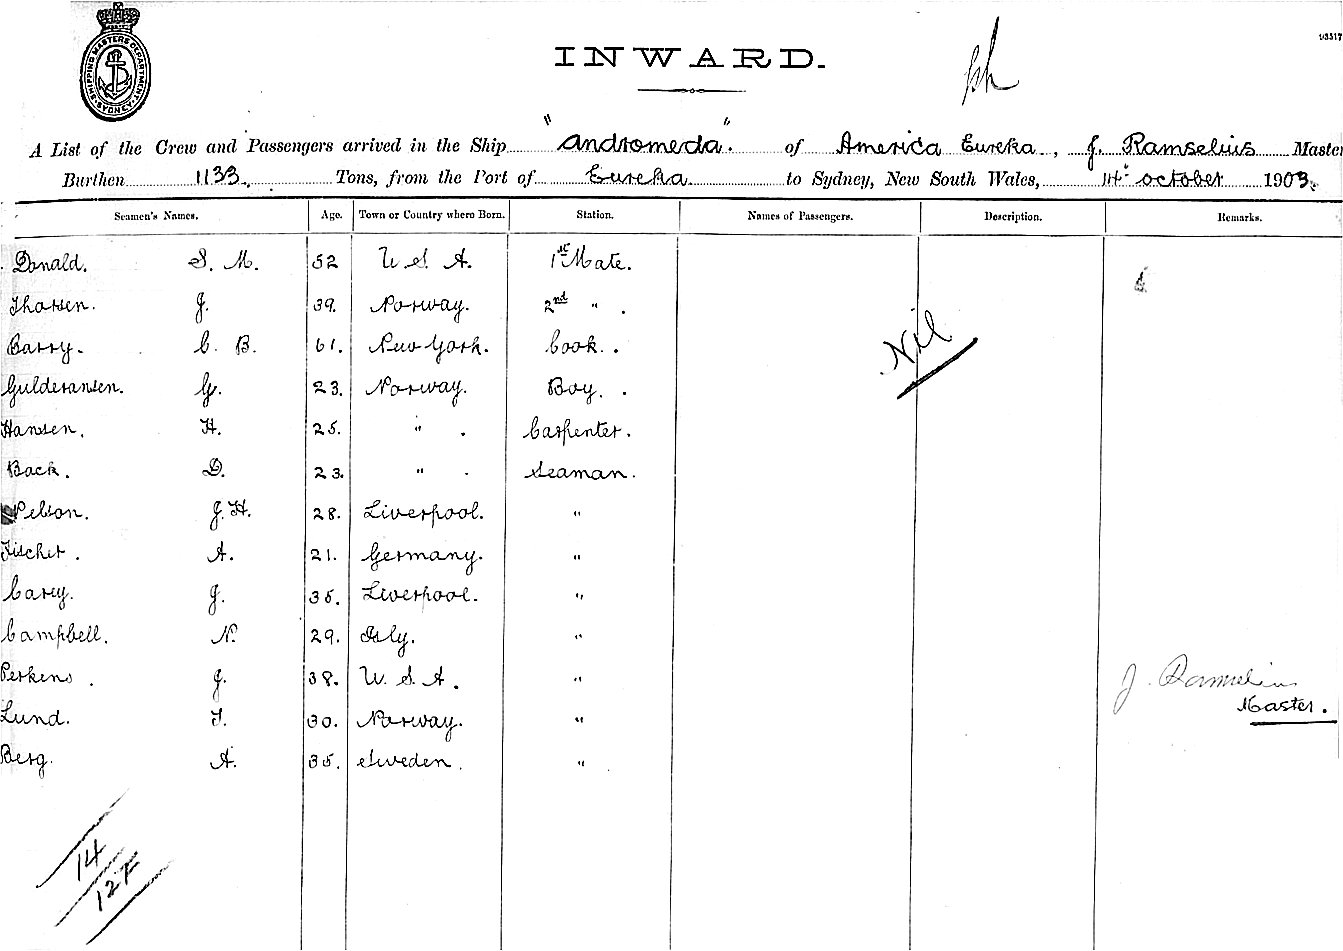 SHIPPING MASTERS DEPARTMENT SYDNEY
INWARD.
A List of the Crew and Passengers arrived in the Ship "Andromeda" of America Eureka, J. Ramselius Master
Burthen 1133 Tons, from the Port of Eureka to Sydney, New South Wales, 14th october 1903.
Seamen's Names. Age. Town or Country where Born. Station. Names of Passengers. Description. Remarks.
Donald. S. M. 52 U S A. 1st Mate.
Thorsen. J. 39. Norway. 2nd " .
Barry. C. B. 61. New York. Cook.
Gulderansen. G. 23. Norway. Boy.
Nil
Hansen. H. 25. " . Carpenter.
Back. D. 23. " . Seaman.
Nelson. J. H. 28. Liverpool. "
Fischer. A. 21. Germany. "
Carey. J. 35. Liverpool. "
Campbell. N. 29. "
Perkins. J. 38. U. S. A. "
J. Ramselius
Lund. 30. Norway. "
Master.
Berg. A. 35. Sweden. "
14